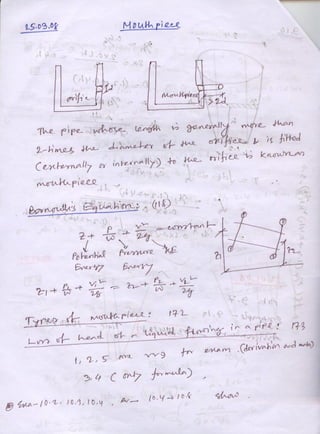 25.03.08 Mouth piece
orific d Mouthpiece >2d
The pipe whose length is generally more than
2-times the diameter of the orifice & is fitted
(externally or internally) to the orifice is known as
mouthpiece
Bernoulli's Equation: (118)
Z + P/W + v²/2g = constant
Potential Pressure KE
Energy Energy
Z₁ + P₁/W + V₁²/2g = Z₂ + P₂/W + V₂²/2g
Z₁
Types of mouthpiece: 172
Loss of head of a liquid flowing in a pipe: 173
1, 2, 5 are for exam (derivation and math)
3.4 (only formula)
10.2, 10.3, 10.4 10.4 show